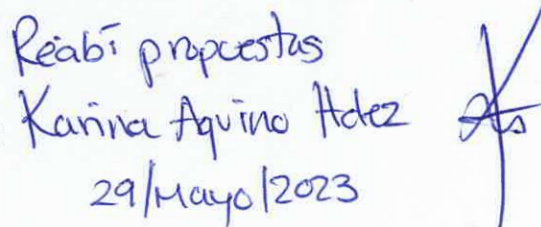 Reabí propuestas
Karina Aquino Hdez
29/Mayo/2023